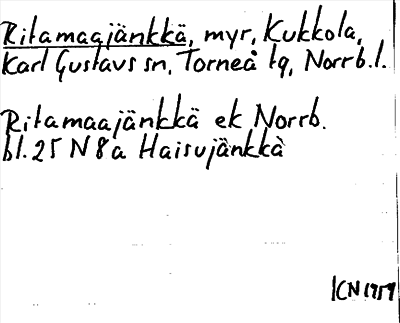 Ritamaajänkkä, myr, Kukkola,
Karl Gustavs sn, Torneå tg, Norrb.l.
Ritamaajänkkä ek Norrb.
bl. 25 N 8a Haisujänkkä
ICN 1959